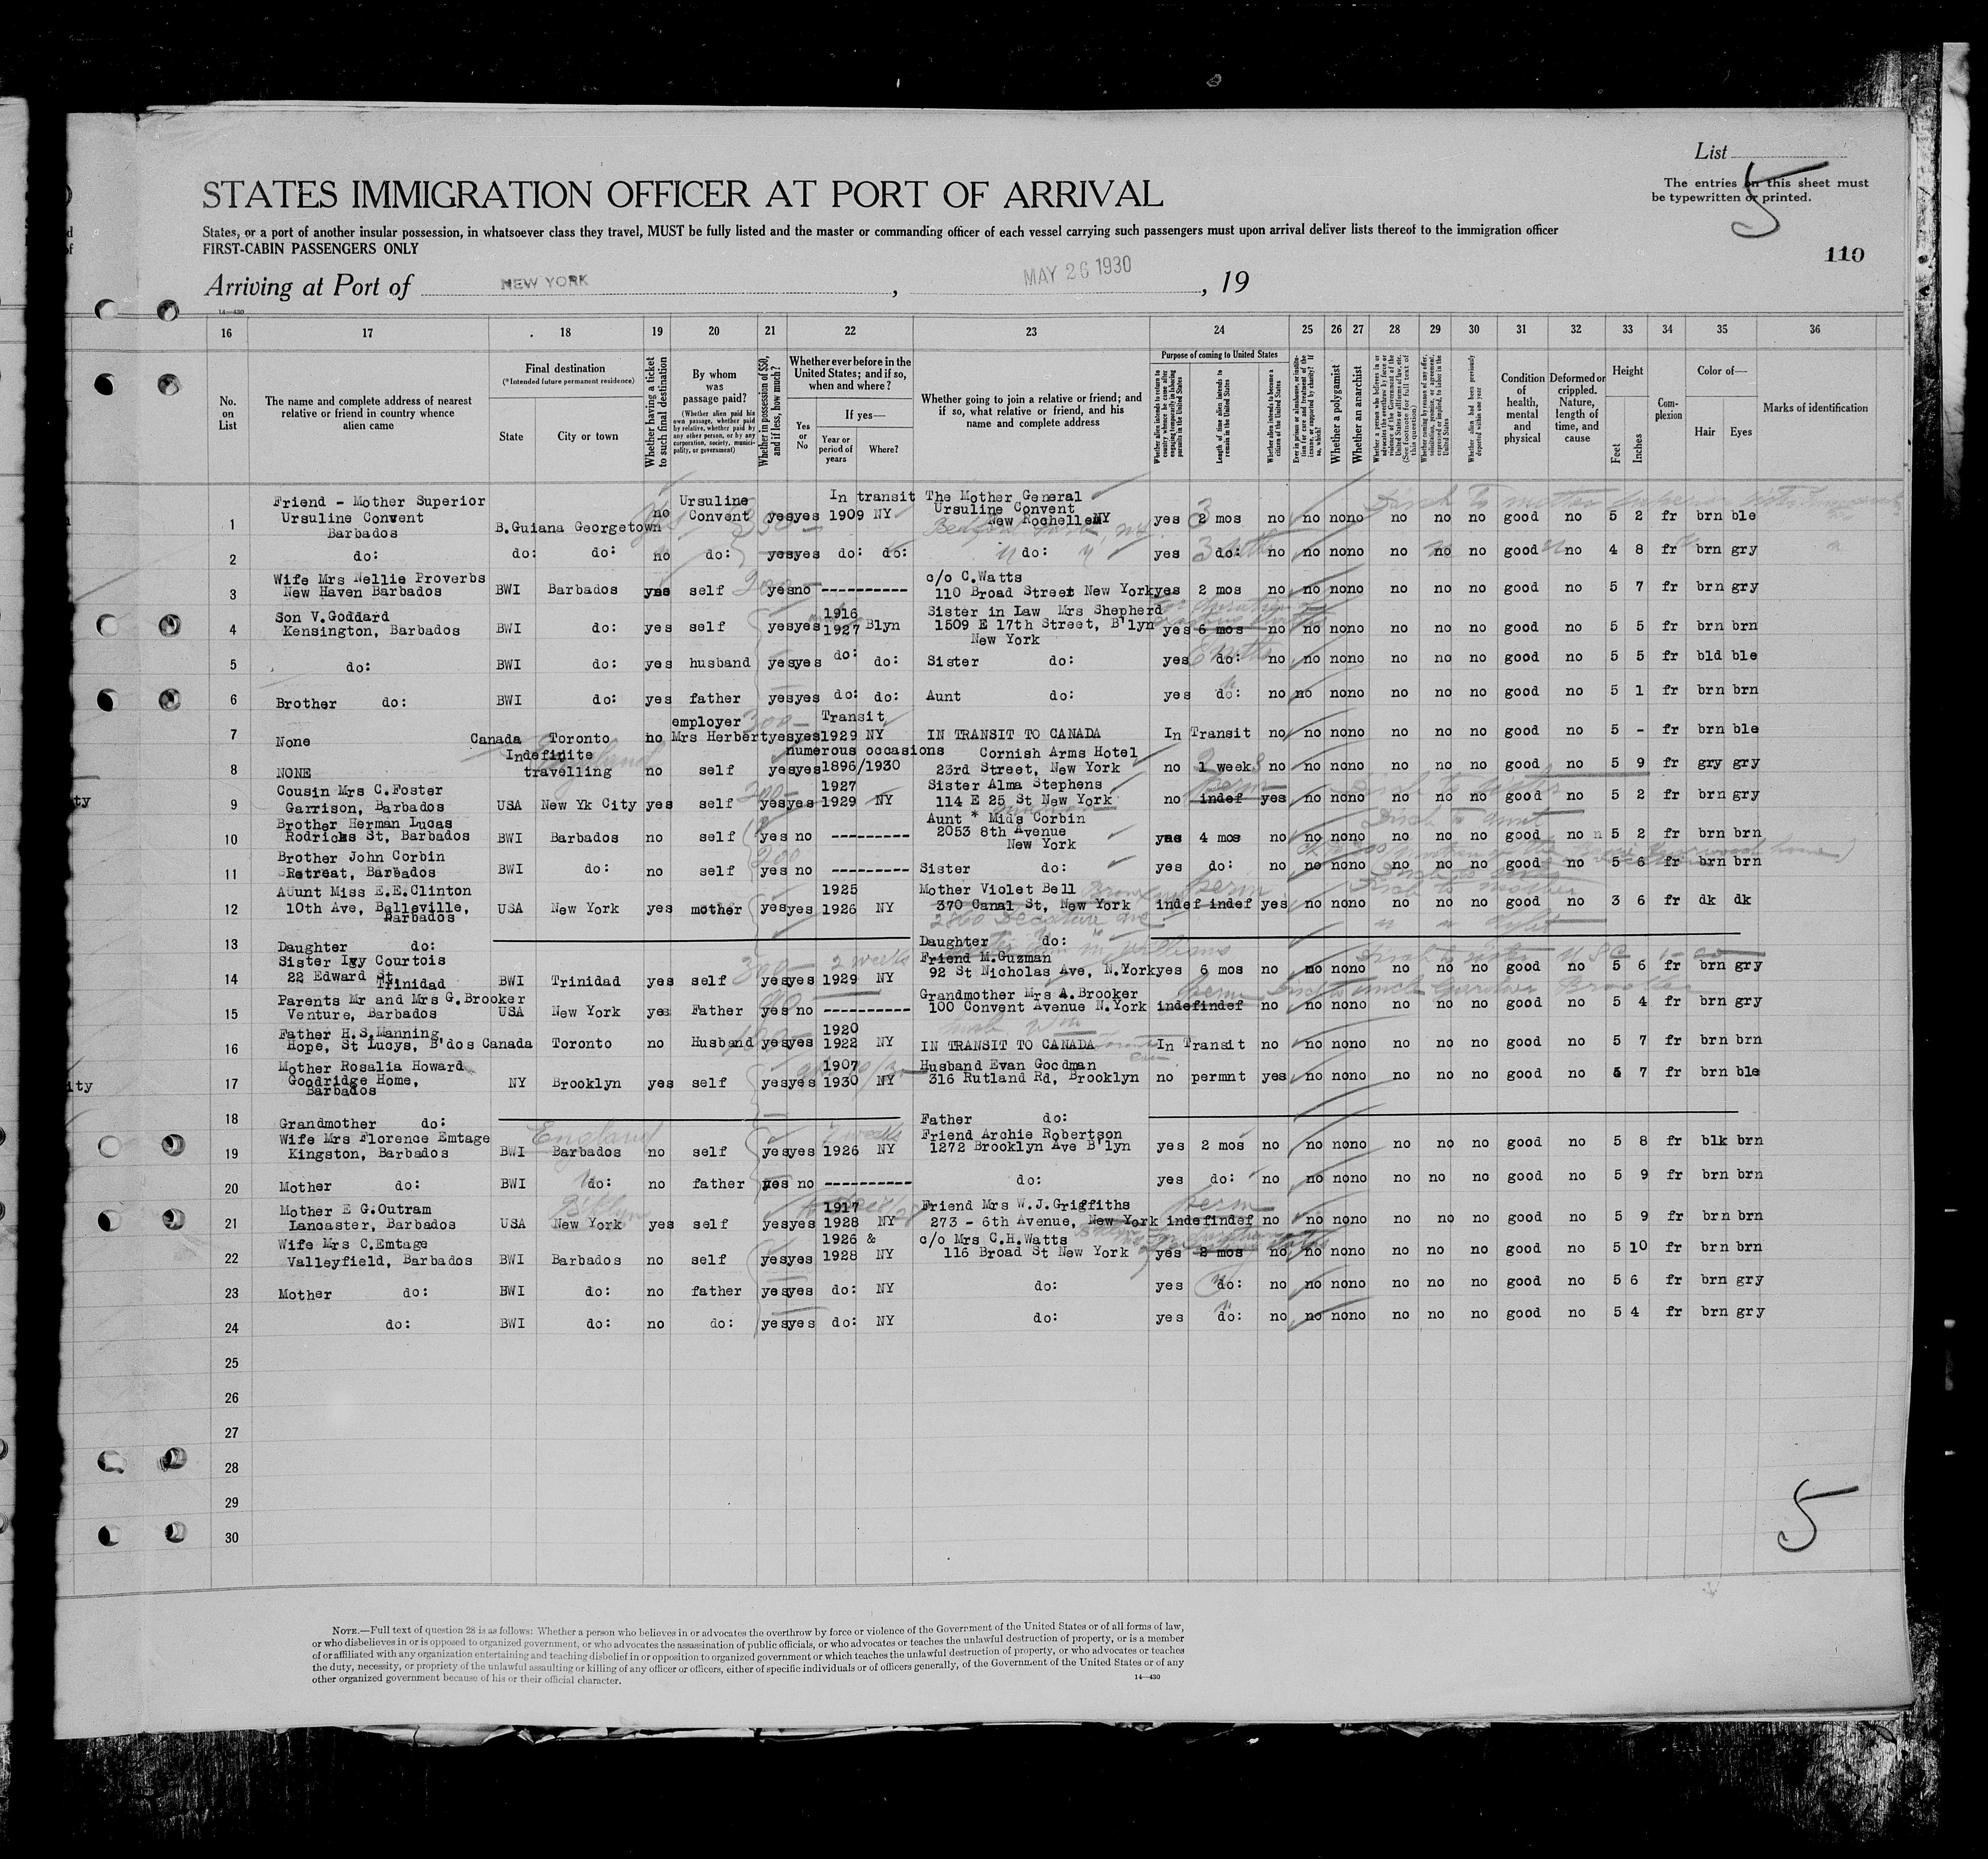 List
5
The entries on this sheet must
be typewritten or printed.
STATES IMMIGRATION OFFICER AT PORT OF ARRIVAL
States, or a port of another insular possession, in whatsoever class they travel, MUST be fully listed and the master or commanding officer of each vessel carrying such passengers must upon arrival deliver lists thereof to the immigration officer
FIRST-CABIN PASSENGERS ONLY
110
Arriving at Port of NEW YORK , MAY 26 1930 , 19
14—430
16 17 18 19 20 21 22 23 24 25 26 27 28 29 30 31 32 33 34 35 36
No. on List
The name and complete address of nearest relative or friend in country whence alien came
Final destination
(*Intended future permanent residence)
State
City or town
Whether having a ticket to such final destination
By whom was passage paid?
(Whether alien paid his own passage, whether paid by relative, whether paid by any other person, or by any corporation, society, municipality, or government)
Whether in possession of $50, and if less, how much?
Whether ever before in the United States; and if so, when and where?
Yes or No
If yes—
Year or period of years
Where?
Whether going to join a relative or friend; and if so, what relative or friend, and his name and complete address
Purpose of coming to United States
Whether alien intends to return to country whence he came after engaging temporarily in laboring pursuits in the United States
Length of time alien intends to remain in the United States
Whether alien intends to become a citizen of the United States
Ever in prison or almshouse, or institution for care and treatment of the insane, or supported by charity? If so, which?
Whether a polygamist
Whether an anarchist
Whether a person who believes in or advocates the overthrow by force or violence of the Government of the United States or all forms of law, etc. (See footnote for full text of this question)
Whether coming by reason of any offer, solicitation, promise, or agreement, expressed or implied, to labor in the United States
Whether alien had been previously deported within one year
Condition of health, mental and physical
Deformed or crippled. Nature, length of time, and cause
Height
Feet
Inches
Complexion
Color of—
Hair
Eyes
Marks of identification
Friend - Mother Superior Ursuline In transit The Mother General
1 Ursuline Convent Barbados B.Guiana Georgetown no Convent yes yes 1909 NY Ursuline Convent New Rochelle NY yes 3 2 mos no no no no no no no good no 5 2 fr brn ble
2 do: do: do: no do: yes yes do: do: do: yes do: no no no no no no no good no 4 8 fr brn gry
3 Wife Mrs Nellie Proverbs New Haven Barbados BWI Barbados yes self yes no ---------- c/o C.Watts 110 Broad Street New York yes 2 mos no no no no no no no good no 5 7 fr brn gry
4 Son V.Goddard Kensington, Barbados BWI do: yes self yes yes 1916 1927 Blyn Sister in Law Mrs Shepherd 1509 E 17th Street, B'lyn New York yes 6 mos no no no no no no no good no 5 5 fr brn brn
5 do: BWI do: yes husband yes yes do: do: Sister do: yes do: no no no no no no no good no 5 5 fr bld ble
6 Brother do: BWI do: yes father yes yes do: do: Aunt do: yes do: no no no no no no no good no 5 1 fr brn brn
7 None Canada Toronto no employer Mrs Herbert 300- yes yes Transit 1929 NY IN TRANSIT TO CANADA In Transit no no no no no no no good no 5 - fr brn ble
8 NONE Indefinite travelling England no self yes yes numerous occasions 1896/1930 Cornish Arms Hotel 23rd Street, New York no 1 week no no no no no no no good no 5 9 fr gry gry
9 Cousin Mrs C.Foster Garrison, Barbados USA New Yk City yes self 200- yes yes 1927 1929 NY Sister Alma Stephens 114 E 25 St New York no indef perm yes no no no no no no good no 5 2 fr brn gry
10 Brother Herman Lucas Rodricks St, Barbados BWI Barbados no self yes no --------- Aunt * Miss Corbin 2053 8th Avenue New York yes 4 mos no no no no no no no good no 5 2 fr brn brn
11 Brother John Corbin Retreat, Barbados BWI do: no self 200 yes no --------- Sister do: yes do: no no no no no no no good no 5 6 fr brn brn
12 Aunt Miss E.E.Clinton 10th Ave, Belleville, Barbados USA New York yes mother yes yes 1925 1926 NY Mother Violet Bell 370 Canal St, New York indef indef perm yes no no no no no no good no 3 6 fr dk dk
13 Daughter do: Daughter do:
14 Sister Igy Courtois 22 Edward St, Trinidad BWI Trinidad yes self 300- yes yes 2 weeks 1929 NY Friend M.Guzman 92 St Nicholas Ave, N.York yes 6 mos no no no no no no no good no 5 6 fr brn gry
15 Parents Mr and Mrs G.Brooker Venture, Barbados USA New York yes Father yes no ---------- Grandmother Mrs A.Brooker 100 Convent Avenue N.York indef indef perm no no no no no no no good no 5 4 fr brn gry
16 Father H.S.Manning Hope, St Lucys, B'dos Canada Toronto no Husband yes yes 1920 1922 NY IN TRANSIT TO CANADA In Transit no no no no no no no good no 5 7 fr brn brn
17 Mother Rosalia Howard Goodridge Home, Barbados NY Brooklyn yes self yes yes 1907 1930 NY Husband Evan Goodman 316 Rutland Rd, Brooklyn no permnt yes no no no no no no good no 5 7 fr brn ble
18 Grandmother do: Father do:
19 Wife Mrs Florence Emtage Kingston, Barbados BWI Barbados England no self yes yes 2 weeks 1926 NY Friend Archie Robertson 1272 Brooklyn Ave B'lyn yes 2 mos no no no no no no no good no 5 8 fr blk brn
20 Mother do: BWI do: no father yes no ---------- do: yes do: no no no no no no no good no 5 9 fr brn brn
21 Mother E G.Outram Lancaster, Barbados USA New York B'klyn yes self yes yes 1917 1928 NY Friend Mrs W.J.Griffiths 273 - 6th Avenue, New York indef indef perm no no no no no no no good no 5 9 fr brn brn
22 Wife Mrs C.Emtage Valleyfield, Barbados BWI Barbados no self yes yes 1926 & 1928 NY c/o Mrs C.H.Watts 116 Broad St New York yes 2 mos no no no no no no no good no 5 10 fr brn brn
23 Mother do: BWI do: no father yes yes do: NY do: yes do: no no no no no no no good no 5 6 fr brn gry
24 do: BWI do: no do: yes yes do: NY do: yes do: no no no no no no no good no 5 4 fr brn gry
25
26
27
28
29
30
5
NOTE.—Full text of question 28 is as follows: Whether a person who believes in or advocates the overthrow by force or violence of the Government of the United States or of all forms of law,
or who disbelieves in or is opposed to organized government, or who advocates the assassination of public officials, or who advocates or teaches the unlawful destruction of property, or is a member
of or affiliated with any organization entertaining and teaching disbelief in or opposition to organized government or which teaches the unlawful destruction of property, or who advocates or teaches
the duty, necessity, or propriety of the unlawful assaulting or killing of any officer or officers, either of specific individuals or of officers generally, of the Government of the United States or of any
other organized government because of his or their official character.
14—430